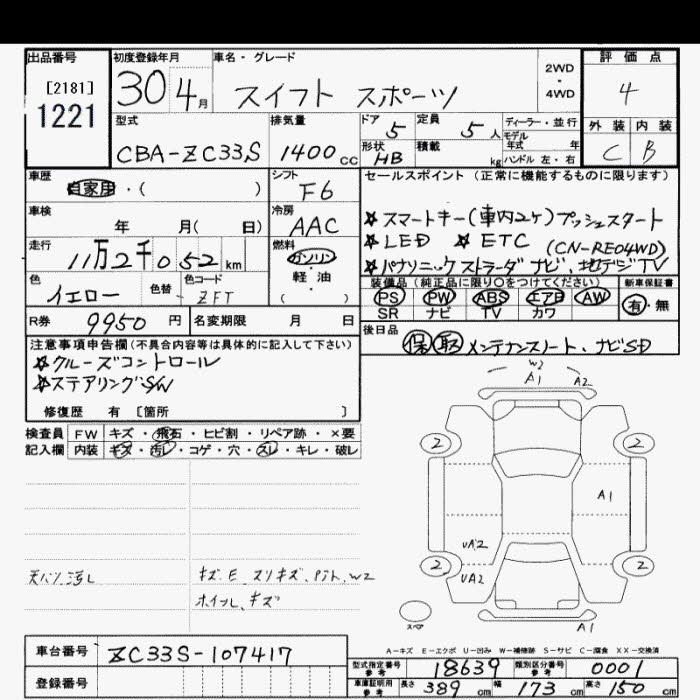 出品番号 初度登録年月 車名・グレード 評価点
[2181]
1221
30 4月 スイフト スポーツ 2WD・4WD 4
型式 排気量 ドア 5 定員 5人 ディーラー・並行 外装 内装
モデル年式 年
CBA-ZC33S 1400cc 形状 HB 積載 kg ハンドル 左・右 C B
車歴 シフト セールスポイント (正常に機能するものに限ります)
自家用・( ) F6
☆スマートキー(車内2ヶ)プッシュスタート
車検 冷房
年 月( 日) AAC
☆LED ☆ETC (CN-RE04WD)
走行 燃料
11万2千052km ガソリン・軽油( )
☆パナソニックストラーダナビ、地デジTV
色 色替 色コード 装備品(純正品に限り○をつけてください) 新車保証書
イエロー - ZFT PS PW ABS エアB AW 有・無
SR ナビ TV カワ
R券 9950円 名変期限 月 日 後日品
保 取 メンテナンスノート、ナビSD
注意事項申告欄(不具合内容等は具体的に記入して下さい)
☆クルーズコントロール
☆ステアリングS/W
修復歴 有 [箇所 ]
検査員 FW キズ・飛石・ヒビ割・リペア跡・×要
記入欄 内装 キズ・汚レ・コゲ・穴・スレ・キレ・破レ
W2
A1 A2
2 2
A1
UA2
2 2
UA2
スペア A1
天バリ汚レ キズ、E、スリキズ、W2
ホイール、キズ
A-キズ E-エクボ U-凹み W-補修跡 S-サビ C-腐食 XX-交換済
車台番号 ZC33S-107417
登録番号
型式指定番号 参考 18639 類別区分番号 参考 0001
車庫証明用 参考 長さ 389cm 幅 173cm 高さ 150cm